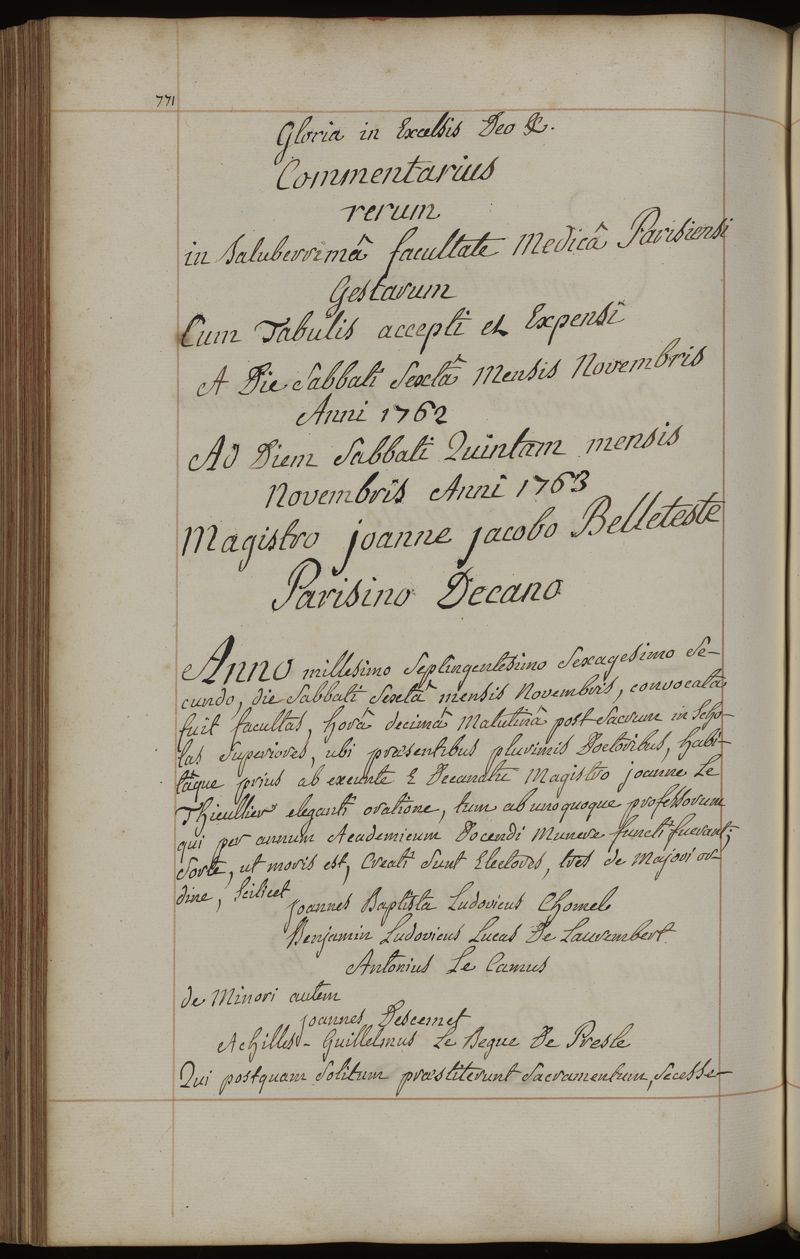 771
Gloria in Excelsis Deo &c.
Commentarius
rerum
in Saluberrimâ facultate Medicâ Parisiensi
Gestarum
Cum Tabulis accepti et Expensi
A Die Sabbati Sextâ Mensis Novembris
Anni 1762
Ad Diem Sabbati Quintam mensis
Novembris Anni 1763
Magistro joanne jacobo Belleteste
Parisino Decano
Anno millesimo Septingentesimo Sexagesimo Se-
cundo, die Sabbati Sextâ mensis Novembris, convocata
fuit facultas, horâ decimâ Matutinâ post Sacrum in Scho-
las Superiores, ubi præsentibus plurimis Doctoribus, habi-
tâque prius ab exeunte è Decanatu Magistro joanne Le
Thieullier eleganti oratione, tum ab unoquoque professorum
qui per annum Academicum Docendi Munere functi fuerant;
Sorte, ut moris est, Creati Sunt Electores, tres de Majori or-
dine, Scilicet
joannes Baptista Ludovicus Chomel
Benjamin Ludovicus Lucas De Laurembert
Antonius Le Camus
de Minori autem
joannes Descemet
Achilles-Guillelmus Le Begue De Presle
Qui postquam Solitum præstiterunt Sacramentum, Secesse-